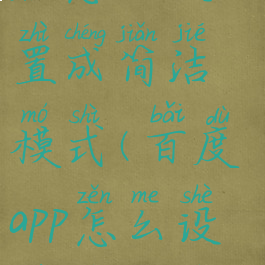 zhì chéng jiǎn jié
置成简洁
mó shì bǎi dù
模式(百度
zěn me shè
app怎么设